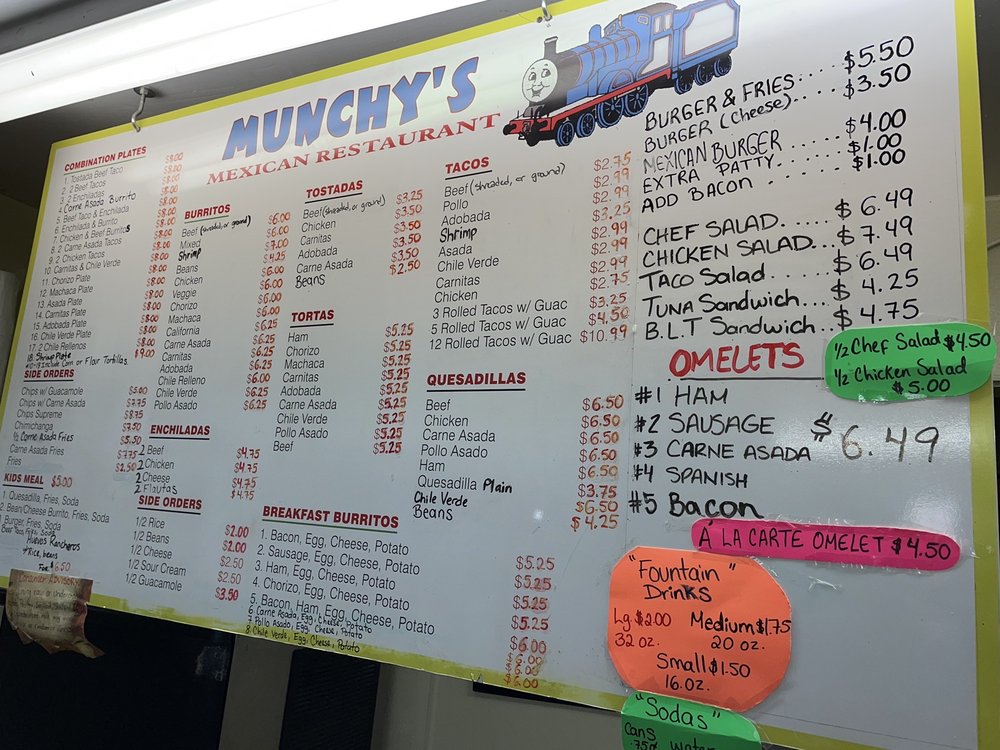 MUNCHY'S
MEXICAN RESTAURANT
COMBINATION PLATES
1. Tostada Beef Taco $8.00
2. 2 Beef Tacos $8.00
3. 2 Enchiladas $8.00
4. Carne Asada Burrito $8.00
5. Beef Taco & Enchilada $8.00
6. Enchilada & Burrito $8.00
7. Chicken & Beef Burritos $8.00
8. 2 Carne Asada Tacos $8.00
9. 2 Chicken Tacos $8.00
10. Carnitas & Chile Verde $8.00
11. Chorizo Plate $8.00
12. Machaca Plate $8.00
13. Asada Plate $8.00
14. Carnitas Plate $8.00
15. Adobada Plate $8.00
16. Chile Verde Plate $8.00
17. 2 Chile Rellenos $8.00
18. Shrimp Plate $9.00
#10-18 Include Corn or Flour Tortillas
SIDE ORDERS
Chips w/ Guacamole $5.00
Chips w/ Carne Asada $7.75
Chips Supreme $8.75
Chimichanga $7.50
1/2 Carne Asada Fries $5.50
Carne Asada Fries $7.75
Fries $2.50
KIDS MEAL $5.00
1. Quesadilla, Fries, Soda
2. Bean/Cheese Burrito, Fries, Soda
Burger, Fries, Soda
Beef Taco, Fries, Soda
Huevos Rancheros
+ Rice, beans
For $6.50
Consumer Advisory
BURRITOS
Beef (shreaded, or ground) $6.00
Mixed $6.00
Shrimp $7.00
Beans $4.25
Chicken $6.00
Veggie $6.00
Chorizo $6.00
Machaca $6.00
California $6.25
Carne Asada $6.25
Carnitas $6.25
Adobada $6.25
Chile Relleno $6.00
Chile Verde $6.25
Pollo Asado $6.25
ENCHILADAS
2 Beef $4.75
2 Chicken $4.75
2 Cheese $4.75
2 Flautas $4.75
SIDE ORDERS
1/2 Rice $2.00
1/2 Beans $2.00
1/2 Cheese $2.50
1/2 Sour Cream $2.50
1/2 Guacamole $3.50
TOSTADAS
Beef (shreaded, or ground) $3.25
Chicken $3.50
Carnitas $3.50
Adobada $3.50
Carne Asada $3.50
Beans $2.50
TORTAS
Ham $5.25
Chorizo $5.25
Machaca $5.25
Carnitas $5.25
Adobada $5.25
Carne Asada $5.25
Pollo Asado $5.25
Beef $5.25
BREAKFAST BURRITOS
1. Bacon, Egg, Cheese, Potato $5.25
2. Sausage, Egg, Cheese, Potato $5.25
3. Ham, Egg, Cheese, Potato $5.25
4. Chorizo, Egg, Cheese, Potato $5.25
5. Bacon, Ham, Egg, Cheese, Potato $6.00
6 Carne Asada, Egg, Cheese, Potato $6.00
7 Pollo Asado, Egg, Cheese, Potato $6.00
8 Chile Verde, Egg, Cheese, Potato $6.00
TACOS
Beef (shreaded, or ground) $2.75
Pollo $2.99
Adobada $2.99
Shrimp $3.25
Asada $2.99
Chile Verde $2.99
Carnitas $2.99
Chicken $2.75
3 Rolled Tacos w/ Guac $3.25
5 Rolled Tacos w/ Guac $4.50
12 Rolled Tacos w/ Guac $10.99
QUESADILLAS
Beef $6.50
Chicken $6.50
Carne Asada $6.50
Pollo Asado $6.50
Ham $6.50
Quesadilla Plain $3.75
Chile Verde $6.50
Beans $4.25
BURGER & FRIES.... $5.50
BURGER (Cheese).... $3.50
MEXICAN BURGER $4.00
EXTRA PATTY..... $1.00
ADD BACON ...... $1.00
CHEF SALAD...... $6.49
CHICKEN SALAD... $7.49
TACO Salad...... $6.49
TUNA Sandwich.... $4.25
B.L.T Sandwich... $4.75
1/2 Chef Salad $4.50
1/2 Chicken Salad
$5.00
OMELETS
#1 HAM
#2 SAUSAGE
#3 CARNE ASADA $6.49
#4 SPANISH
#5 Bacon
Á LA CARTE OMELET $4.50
"Fountain"
Drinks
Lg $2.00 Medium $1.75
32 oz. 20 oz.
Small $1.50
16.oz.
"Sodas"
Cans water
.75¢